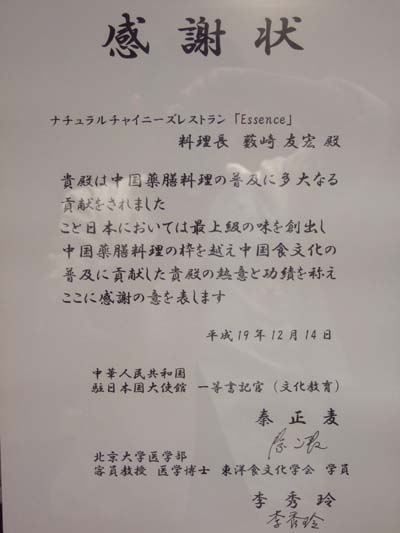 感謝状
ナチュラルチャイニーズレストラン「Essence」
料理長 藪崎 友宏 殿
貴殿は中国薬膳料理の普及に多大なる
貢献をされました
こと日本においては最上級の味を創出し
中国薬膳料理の枠を越え中国食文化の
普及に貢献した貴殿の熱意と功績を称え
ここに感謝の意を表します
平成19年12月14日
中華人民共和国
駐日本国大使館 一等書記官（文化教育）
秦正麦
北京大学医学部
客員教授 医学博士 東洋食文化学会 学員
李秀玲
李秀玲